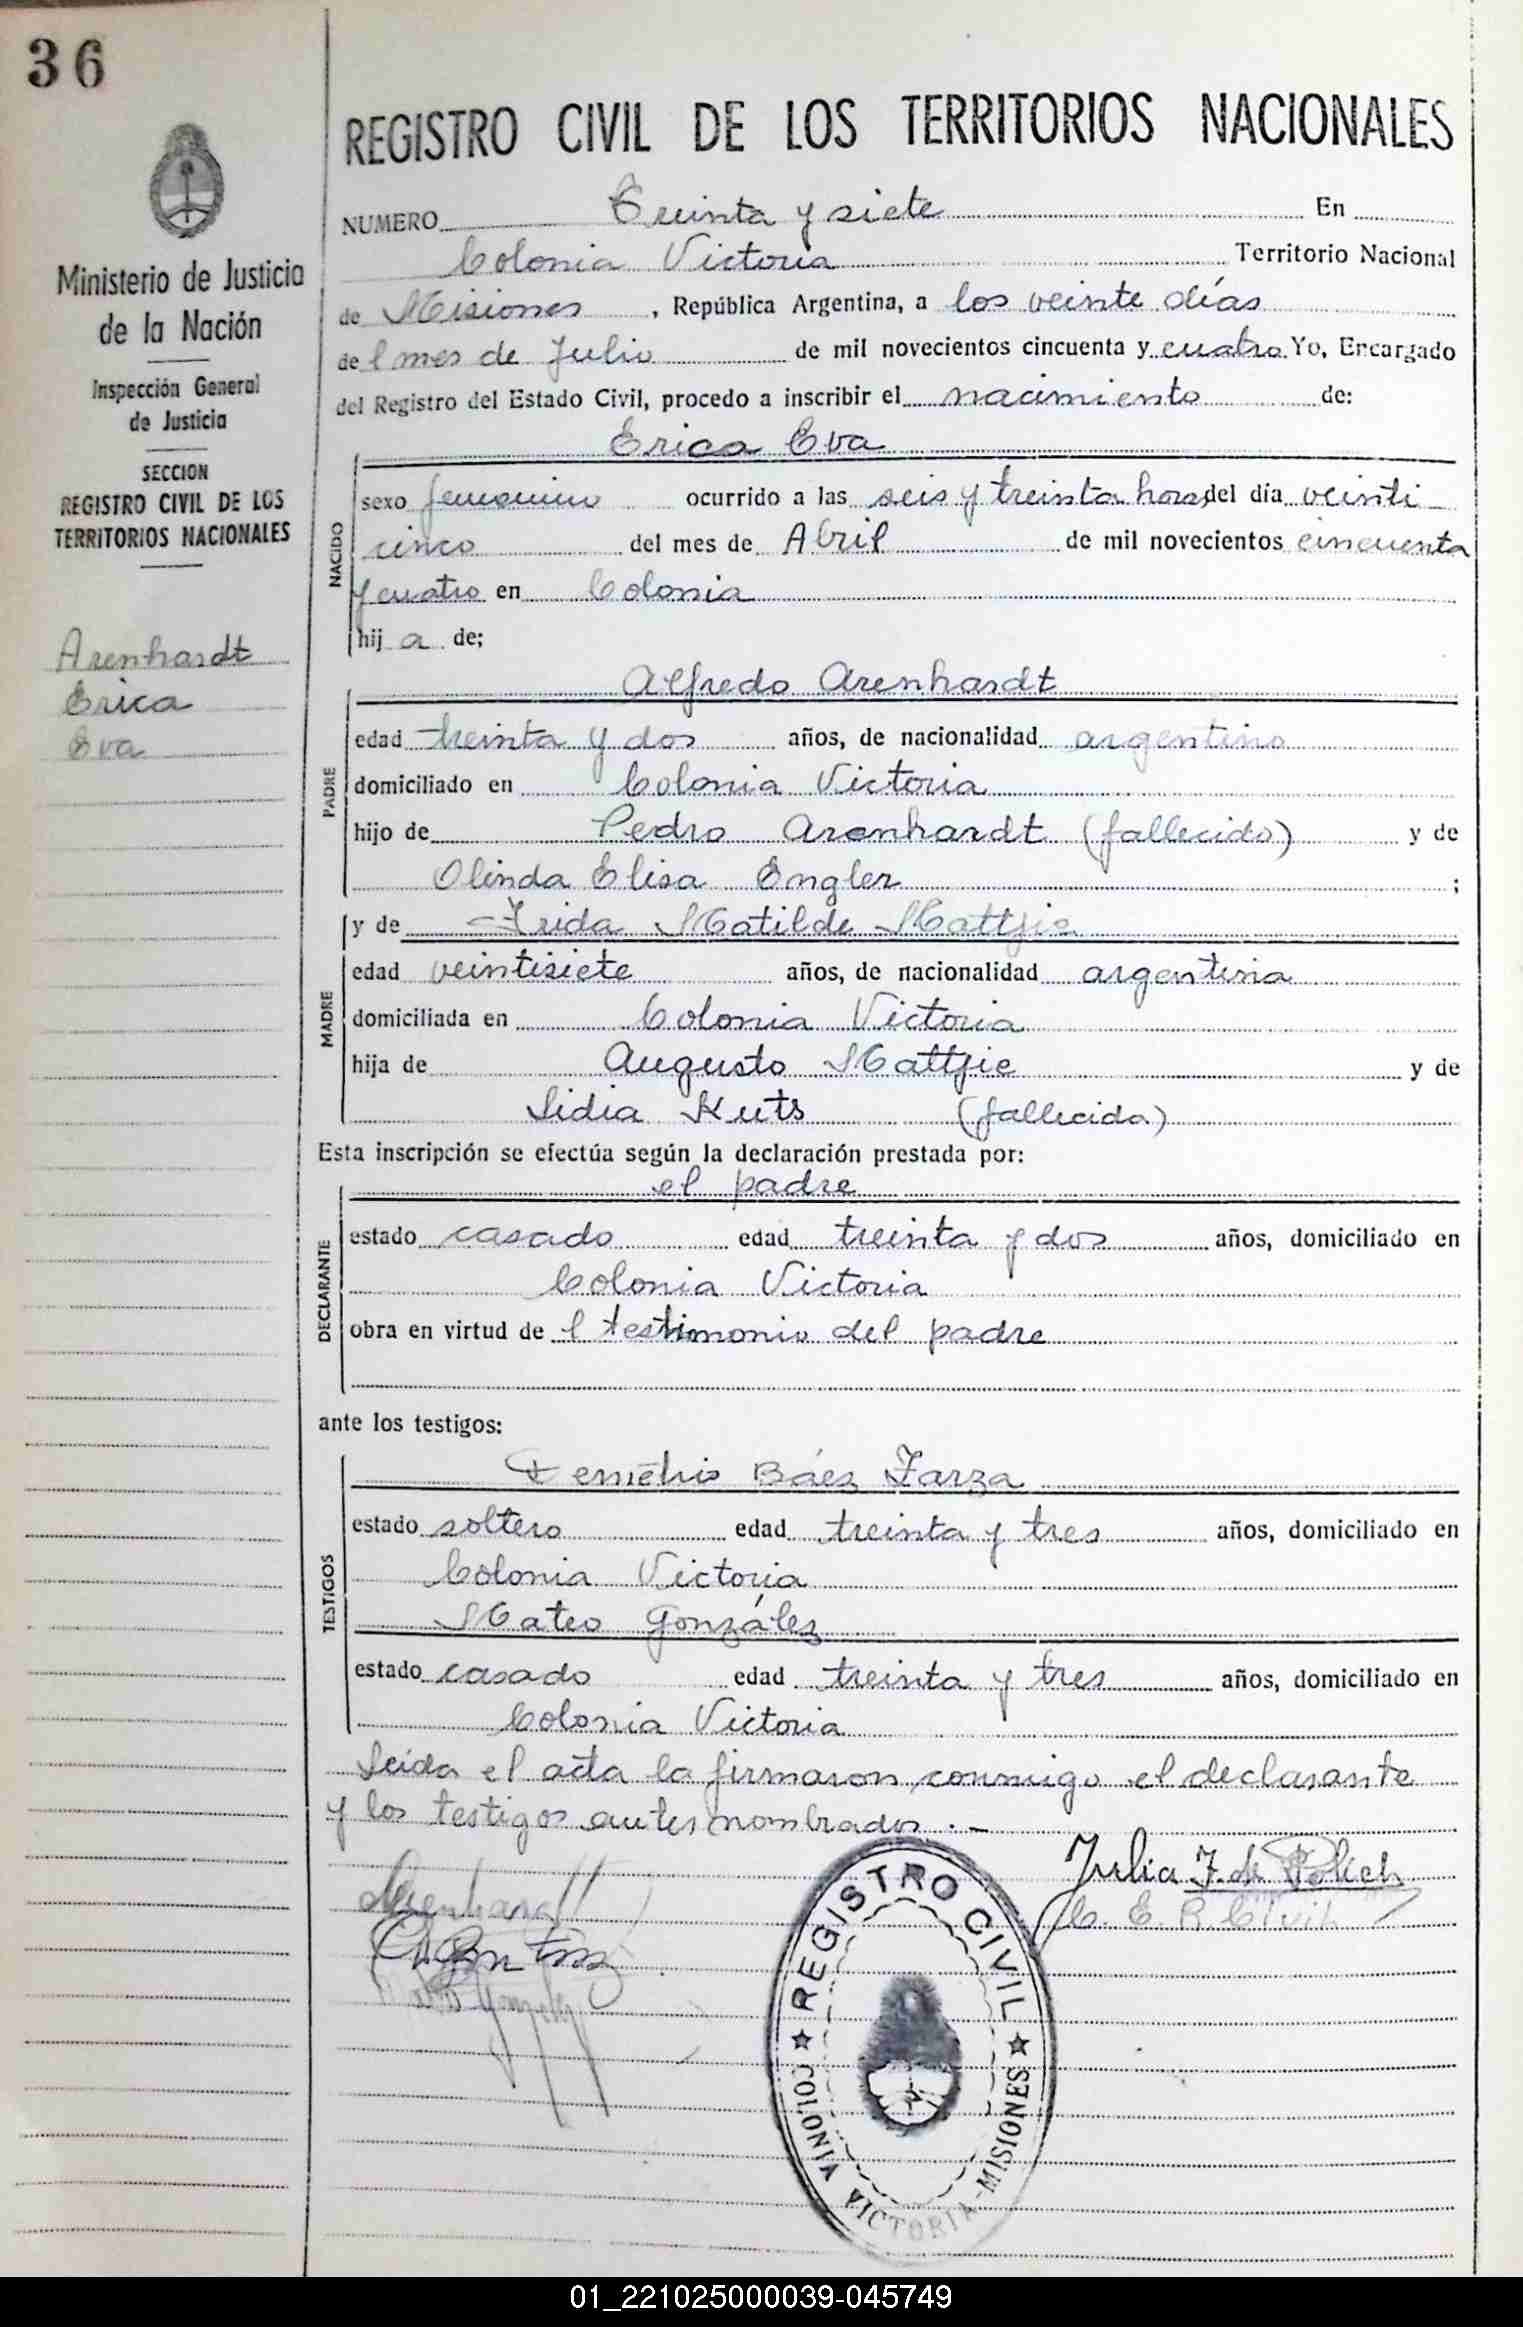 36
Ministerio de Justicia
de la Nación
Inspección General
de Justicia
SECCION
REGISTRO CIVIL DE LOS
TERRITORIOS NACIONALES
Arenhardt
Erica
Eva
REGISTRO CIVIL DE LOS TERRITORIOS NACIONALES
NUMERO Treinta y siete En
Colonia Victoria Territorio Nacional
de Misiones , República Argentina, a los veinte días
del mes de Julio de mil novecientos cincuenta y cuatro Yo, Encargado
del Registro del Estado Civil, procedo a inscribir el nacimiento de:
Erica Eva
NACIDO
sexo femenino ocurrido a las seis y treinta horas del día veinti
cinco del mes de Abril de mil novecientos cincuenta
y cuatro en Colonia
hij a de;
Alfredo Arenhardt
PADRE
edad treinta y dos años, de nacionalidad argentino
domiciliado en Colonia Victoria
hijo de Pedro Arenhardt (fallecido) y de
Olinda Elisa Engler ;
y de Frida Matilde Mattjie
MADRE
edad veintisiete años, de nacionalidad argentina
domiciliada en Colonia Victoria
hija de Augusto Mattjie y de
Lidia Kuts (fallecida)
Esta inscripción se efectúa según la declaración prestada por:
el padre
DECLARANTE
estado casado edad treinta y dos años, domiciliado en
Colonia Victoria
obra en virtud de l testimonio del padre
ante los testigos:
Demetrio Báez Zarza
TESTIGOS
estado soltero edad treinta y tres años, domiciliado en
Colonia Victoria
Mateo González
estado casado edad treinta y tres años, domiciliado en
Colonia Victoria
Leída el acta la firmaron conmigo el declarante
y los testigos antes nombrados . –
Julia F. de Polich
E. R. Civil
Arenhardt
REGISTRO CIVIL
COLONIA VICTORIA-MISIONES
01_221025000039-045749